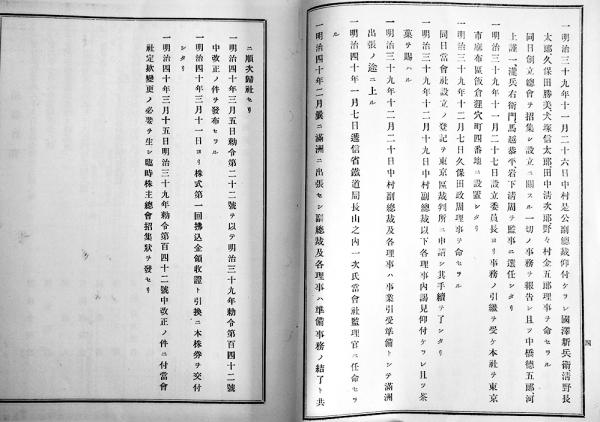 一明治三十九年十一月二十六日中村是公副總裁仰付ケラレ國澤新兵衞淸野長
太郎久保田勝美犬塚信太郎田中淸次郎野々村金五郎理事ヲ命セラル
同日創立總會ヲ招集シ設立ニ關スル一切ノ事務ヲ報告シ且ツ中橋德五郎河
上謹一瀧兵右衞門馬越恭平岩下淸周ヲ監事ニ選任シタリ
一明治三十九年十一月二十七日設立委員長ヨリ事務ノ引繼ヲ受ケ本社ヲ東京
市麻布區飯倉狸穴町四番地ニ設置シタリ
一明治三十九年十二月七日久保田政周理事ヲ命セラル
同日當會社設立ノ登記ヲ東京區裁判所ニ申請シ其手續ヲ了シタリ
一明治三十九年十二月十日中村副總裁以下各理事內謁見仰付ケラレ且ツ茶
菓ヲ賜ハル
一明治三十九年十二月二十日中村副總裁及各理事ハ事業引受準備トシテ滿洲
出張ノ途ニ上ル
一明治四十年一月七日遞信省鐵道局長山之內一次氏當會社監理官ニ任命セラ
ル
一明治四十年二月曩ニ滿洲ニ出張セシ副總裁及各理事ハ準備事務ノ結了ト共
四
ニ順次歸社セリ
一明治四十年三月五日勅令第二十二號ヲ以テ明治三十九年勅令第百四十二號
中改正ノ件ヲ發布セラル
一明治四十年三月十一日ヨリ株式第一回拂込金領收證ト引換ニ本株券ヲ交付
シタリ
一明治四十年三月十五日明治三十九年勅令第百四十二號中改正ノ件ニ付當會
社定欵變更ノ必要ヲ生シ臨時株主總會招集狀ヲ發セリ